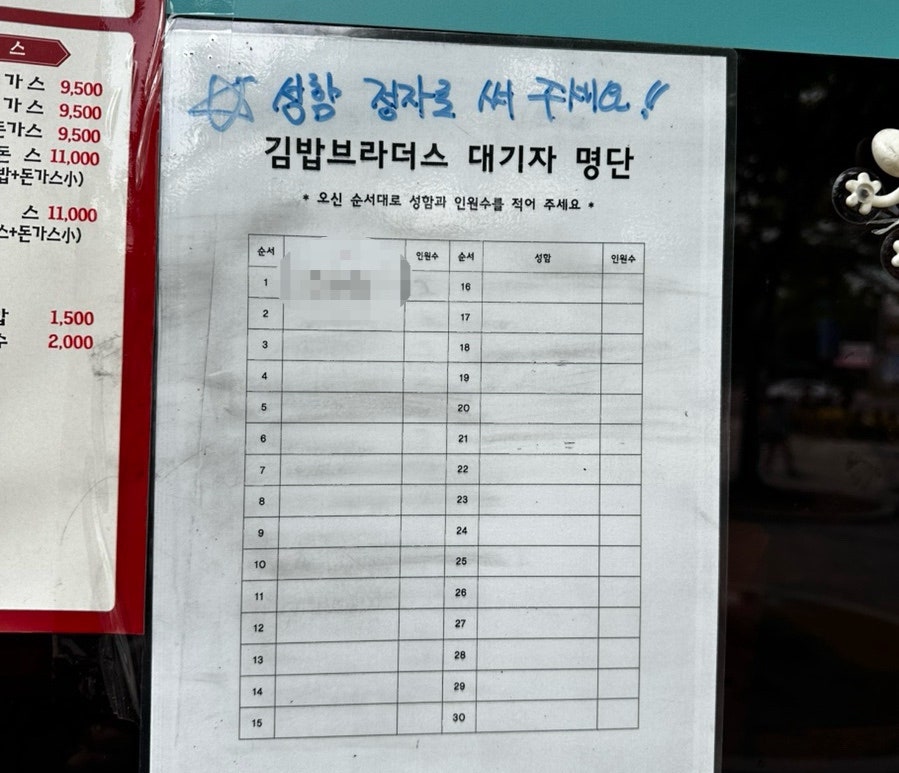 스
가스 9,500
가스 9,500
돈가스 9,500
돈 스 11,000
밥+돈가스小)
스 11,000
스+돈가스小)
1,500
2,000
☆ 성함 정자로 써 주세요!!
김밥브라더스 대기자 명단
* 오신 순서대로 성함과 인원수를 적어 주세요 *
순서 인원수 순서 성함 인원수
1 16
2 17
3 18
4 19
5 20
6 21
7 22
8 23
9 24
10 25
11 26
12 27
13 28
14 29
15 30